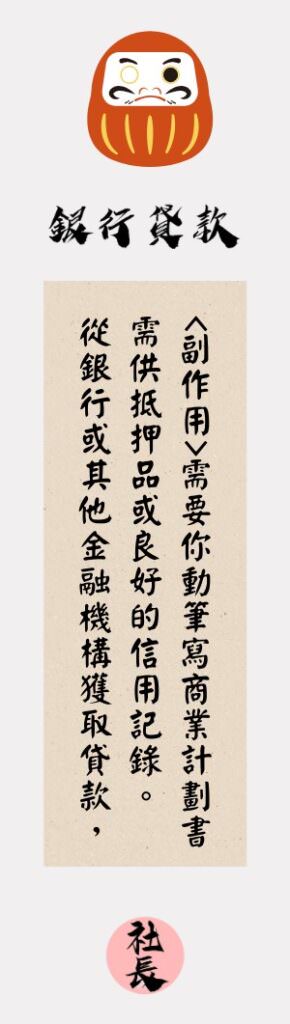 銀行貸款
從銀行或其他金融機構獲取貸款，
需供抵押品或良好的信用記錄。
<副作用>需要你動筆寫商業計劃書
社長